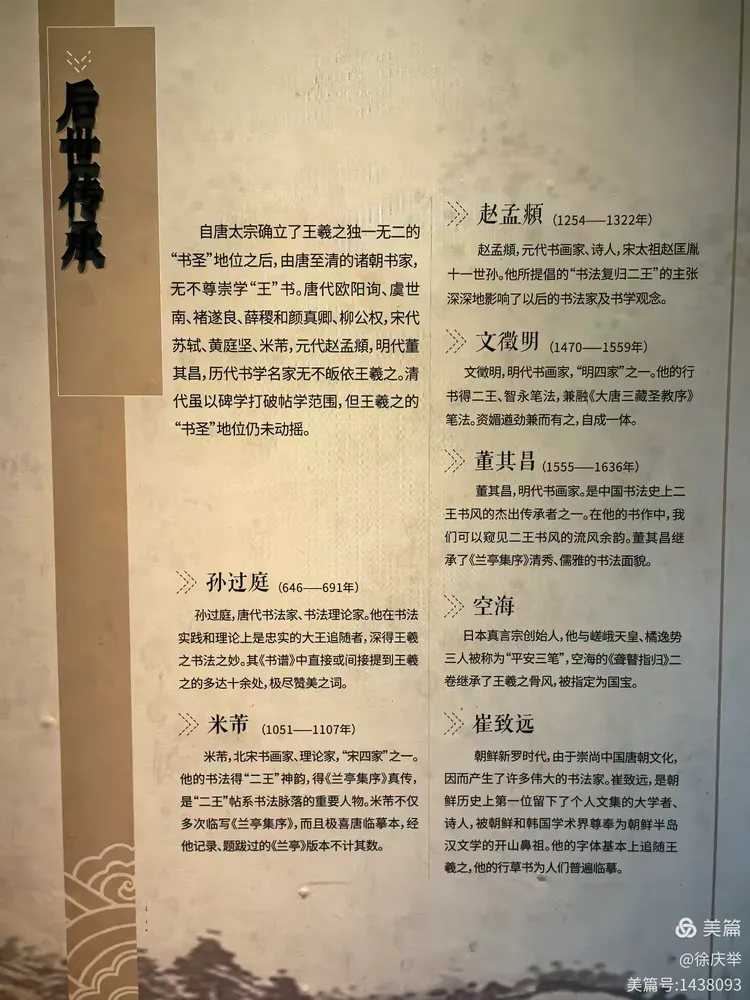 后世传承
自唐太宗确立了王羲之独一无二的
“书圣”地位之后，由唐至清的诸朝书家，
无不尊崇学“王”书。唐代欧阳询、虞世
南、褚遂良、薛稷和颜真卿、柳公权，宋代
苏轼、黄庭坚、米芾，元代赵孟頫，明代董
其昌，历代书学名家无不皈依王羲之。清
代虽以碑学打破帖学范围，但王羲之的
“书圣”地位仍未动摇。
孙过庭（646——691年）
孙过庭，唐代书法家、书法理论家。他在书法
实践和理论上是忠实的大王追随者，深得王羲
之书法之妙。其《书谱》中直接或间接提到王羲
之的多达十余处，极尽赞美之词。
米芾（1051——1107年）
米芾，北宋书画家、理论家，“宋四家”之一。
他的书法得“二王”神韵，得《兰亭集序》真传，
是“二王”帖系书法脉落的重要人物。米芾不仅
多次临写《兰亭集序》，而且极喜唐临摹本，经
他记录、题跋过的《兰亭》版本不计其数。
赵孟頫（1254——1322年）
赵孟頫，元代书画家、诗人，宋太祖赵匡胤
十一世孙。他所提倡的“书法复归二王”的主张
深深地影响了以后的书法家及书学观念。
文徵明（1470——1559年）
文徵明，明代书画家，“明四家”之一。他的行
书得二王、智永笔法，兼融《大唐三藏圣教序》
笔法。资媚遒劲兼而有之，自成一体。
董其昌（1555——1636年）
董其昌，明代书画家。是中国书法史上二
王书风的杰出传承者之一。在他的书作中，我
们可以窥见二王书风的流风余韵。董其昌继
承了《兰亭集序》清秀、儒雅的书法面貌。
空海
日本真言宗创始人，他与嵯峨天皇、橘逸势
三人被称为“平安三笔”，空海的《聋瞽指归》二
卷继承了王羲之骨风，被指定为国宝。
崔致远
朝鲜新罗时代，由于崇尚中国唐朝文化，
因而产生了许多伟大的书法家。崔致远，是朝
鲜历史上第一位留下了个人文集的大学者、
诗人，被朝鲜和韩国学术界尊奉为朝鲜半岛
汉文学的开山鼻祖。他的字体基本上追随王
羲之，他的行草书为人们普遍临摹。
美篇
@徐庆举
美篇号:1438093